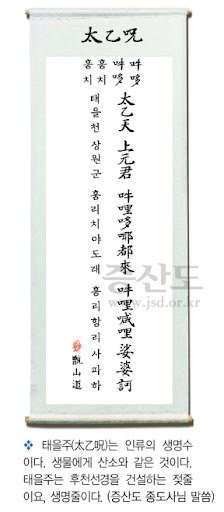 太乙呪
吽哆
吽哆
훔치
훔치
太乙天 上元君 吽哩哆㖿都來 吽哩喊哩娑婆訶
태을천 상원군 훔리치야도래 훔리함리사파하
甑山道
증산도
www.jsd.or.kr
❖ 태을주(太乙呪)는 인류의 생명수
이다. 생물에게 산소와 같은 것이다.
태을주는 후천선경을 건설하는 젖줄
이요, 생명줄이다. (증산도 종도사님 말씀)